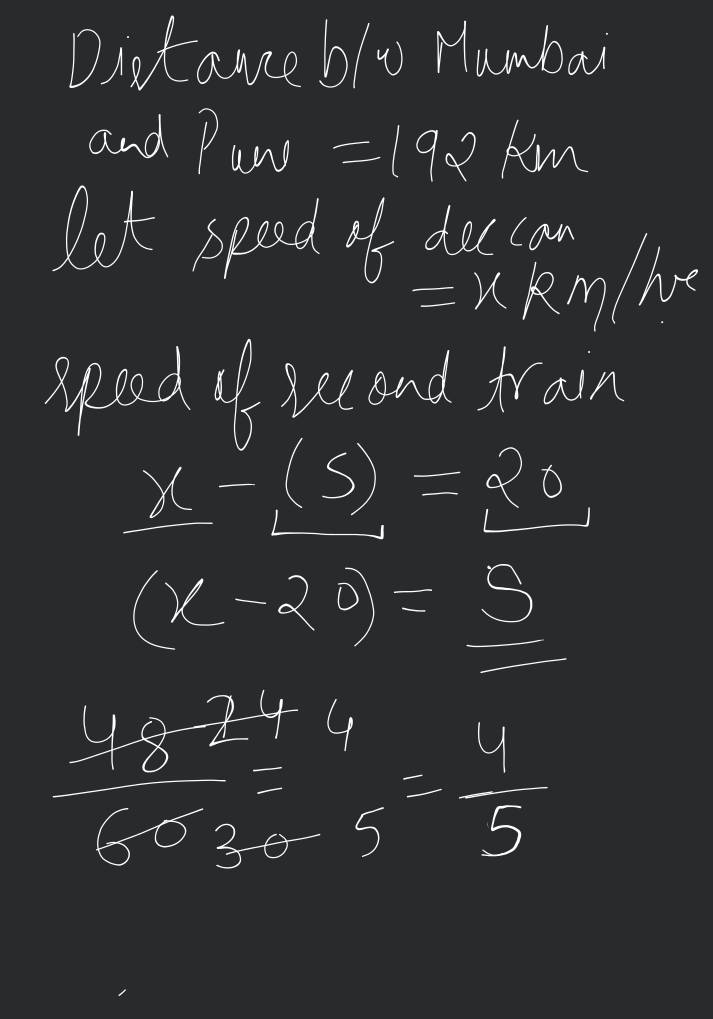 Distance b/w Mumbai
and Pune = 192 km
let speed of deccan
= x km/hr
speed of second train
x - (S) = 20
(x - 20) = S
48 24 4 = = 4
60 30 5 5